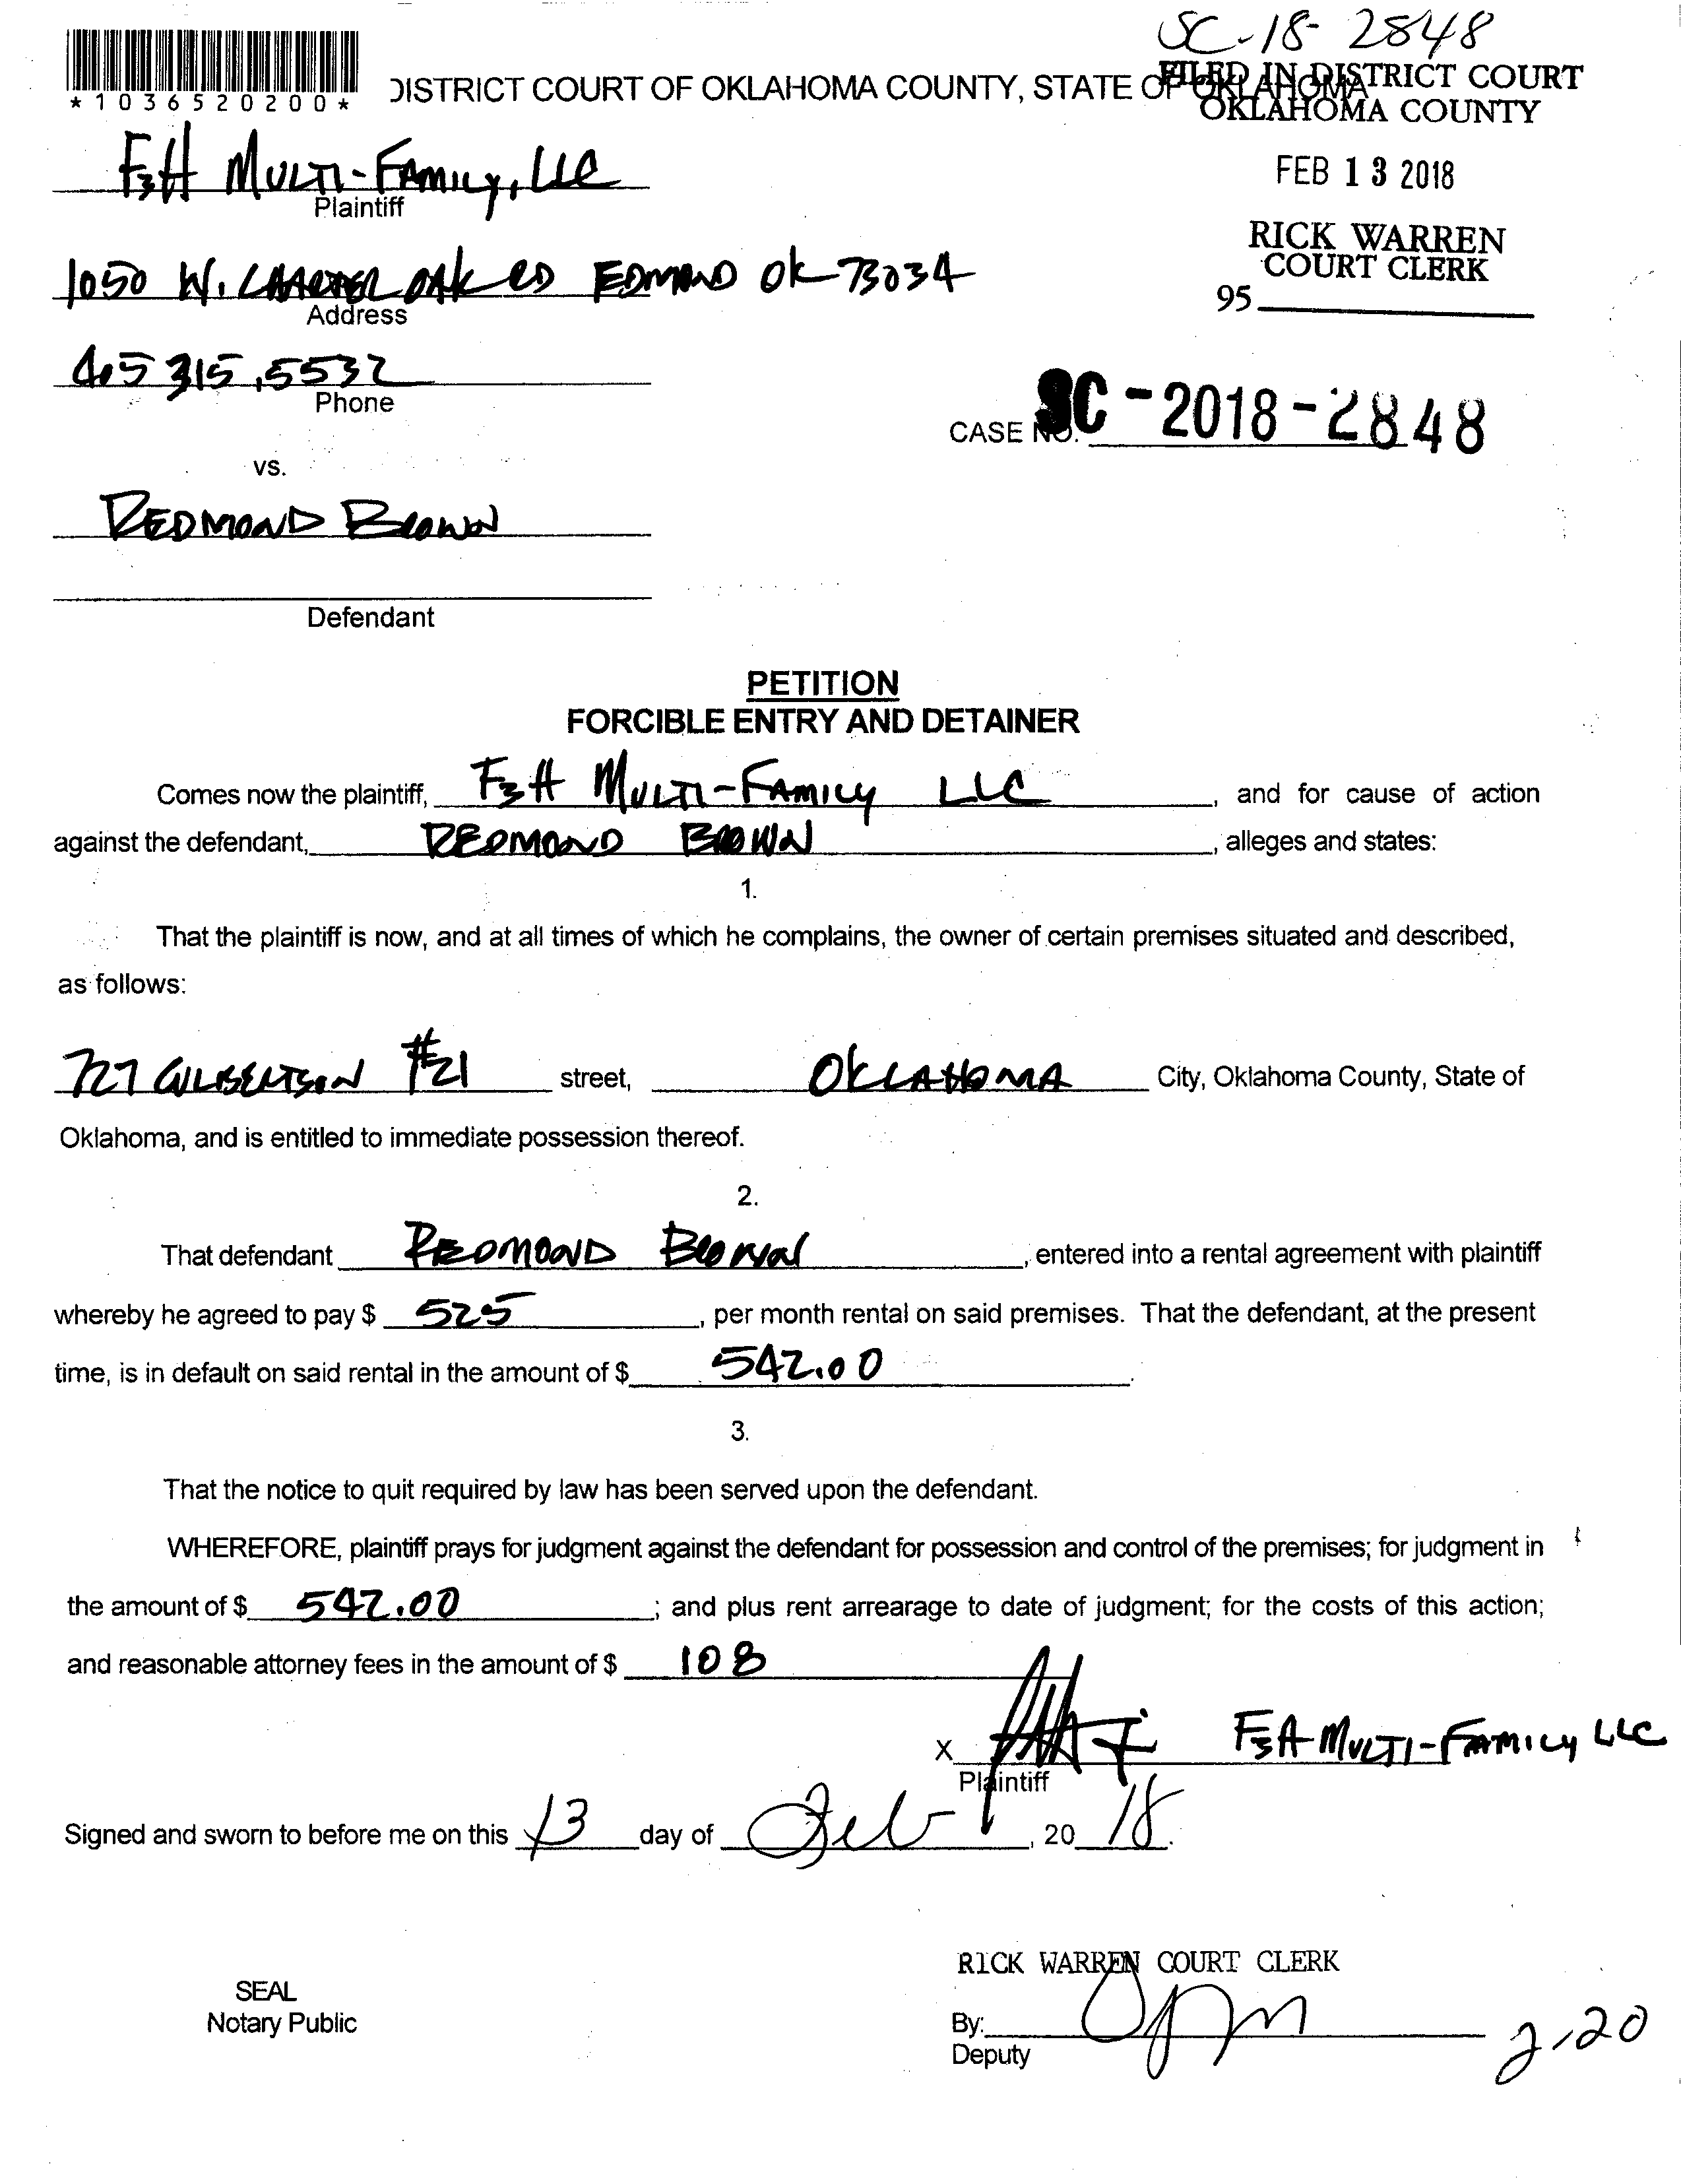 SC-18-2848
*1036520200*
DISTRICT COURT OF OKLAHOMA COUNTY, STATE OF OKLAHOMA
FILED IN DISTRICT COURT
OKLAHOMA COUNTY
FEB 13 2018
RICK WARREN
COURT CLERK
95
MULTI-FAMILY, LLC
Plaintiff
1050 W. CHARTER OAK RD EDMOND OK 73034
Address
405 315.5532
Phone
CASE NO. SC-2018-2848
vs.
REDMOND BROWN
Defendant
PETITION
FORCIBLE ENTRY AND DETAINER
Comes now the plaintiff, MULTI-FAMILY LLC, and for cause of action
against the defendant, REDMOND BROWN, alleges and states:
1.
That the plaintiff is now, and at all times of which he complains, the owner of certain premises situated and described,
as follows:
727 GILBERTSON #21 street, OKLAHOMA City, Oklahoma County, State of
Oklahoma, and is entitled to immediate possession thereof.
2.
That defendant REDMOND BROWN, entered into a rental agreement with plaintiff
whereby he agreed to pay $ 525, per month rental on said premises. That the defendant, at the present
time, is in default on said rental in the amount of $ 542.00.
3.
That the notice to quit required by law has been served upon the defendant.
WHEREFORE, plaintiff prays for judgment against the defendant for possession and control of the premises; for judgment in
the amount of $ 542.00; and plus rent arrearage to date of judgment; for the costs of this action;
and reasonable attorney fees in the amount of $ 108
X MULTI-FAMILY LLC
Plaintiff
Signed and sworn to before me on this 13 day of Feb, 20 18.
RICK WARREN COURT CLERK
SEAL
Notary Public
By:
Deputy
2.20